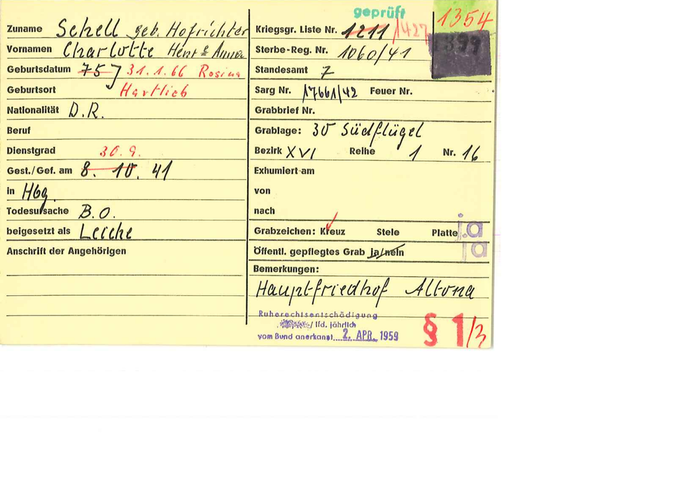 geprüft
1354
Zuname Schell geb. Hofrichter
Kriegsgr. Liste Nr. 1211 /427
Vornamen Charlotte Henr. &
Sterbe-Reg. Nr. 1060/41
Geburtsdatum 75 31.1.66 Rosina
Standesamt 7
Geburtsort Hartlieb
Sarg Nr. 17661/42 Feuer Nr.
Nationalität D.R.
Grabbrief Nr.
Beruf
Grablage: 30 Südflügel
Dienstgrad 30.9.
Bezirk XVI Reihe 1 Nr. 16
Gest./Gef. am 8. 10. 41
Exhumiert am
in Hbg.
von
Todesursache B.O.
nach
beigesetzt als Leiche
Grabzeichen: Kreuz Stele Platte ja
Anschrift der Angehörigen
Öffentl. gepflegtes Grab ja/nein ja
Bemerkungen:
Hauptfriedhof Altona
Ruherechtsentschädigung
/ lfd. jährlich
vom Bund anerkannt 2. APR. 1959
§ 1/3